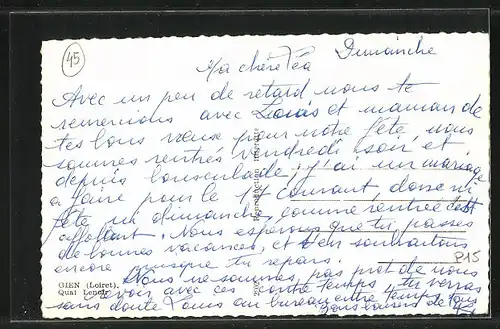 45
Dimanche
Ma chère Téa
Avec un peu de retard nous te
remercions avec Louis et maman de
tes bons vœux pour notre fête, nous
sommes rentrés vendredi soir et
depuis bousculade, j'ai un mariage
a faire pour le 17 courant, donc ni
fête ni dimanche, comme rentrée c'est
affolant. Nous espérons que tu passes
de bonnes vacances, et t'en souhaitons
encore puisque tu repars.
Nous ne sommes pas prêt de nous
revoir avec ces contre temps, tu verras
sans doute Louis au bureau entre temps
Bons baisers de tous
P15
GIEN (Loiret).
Quai Lenoir
Reproduction interdite